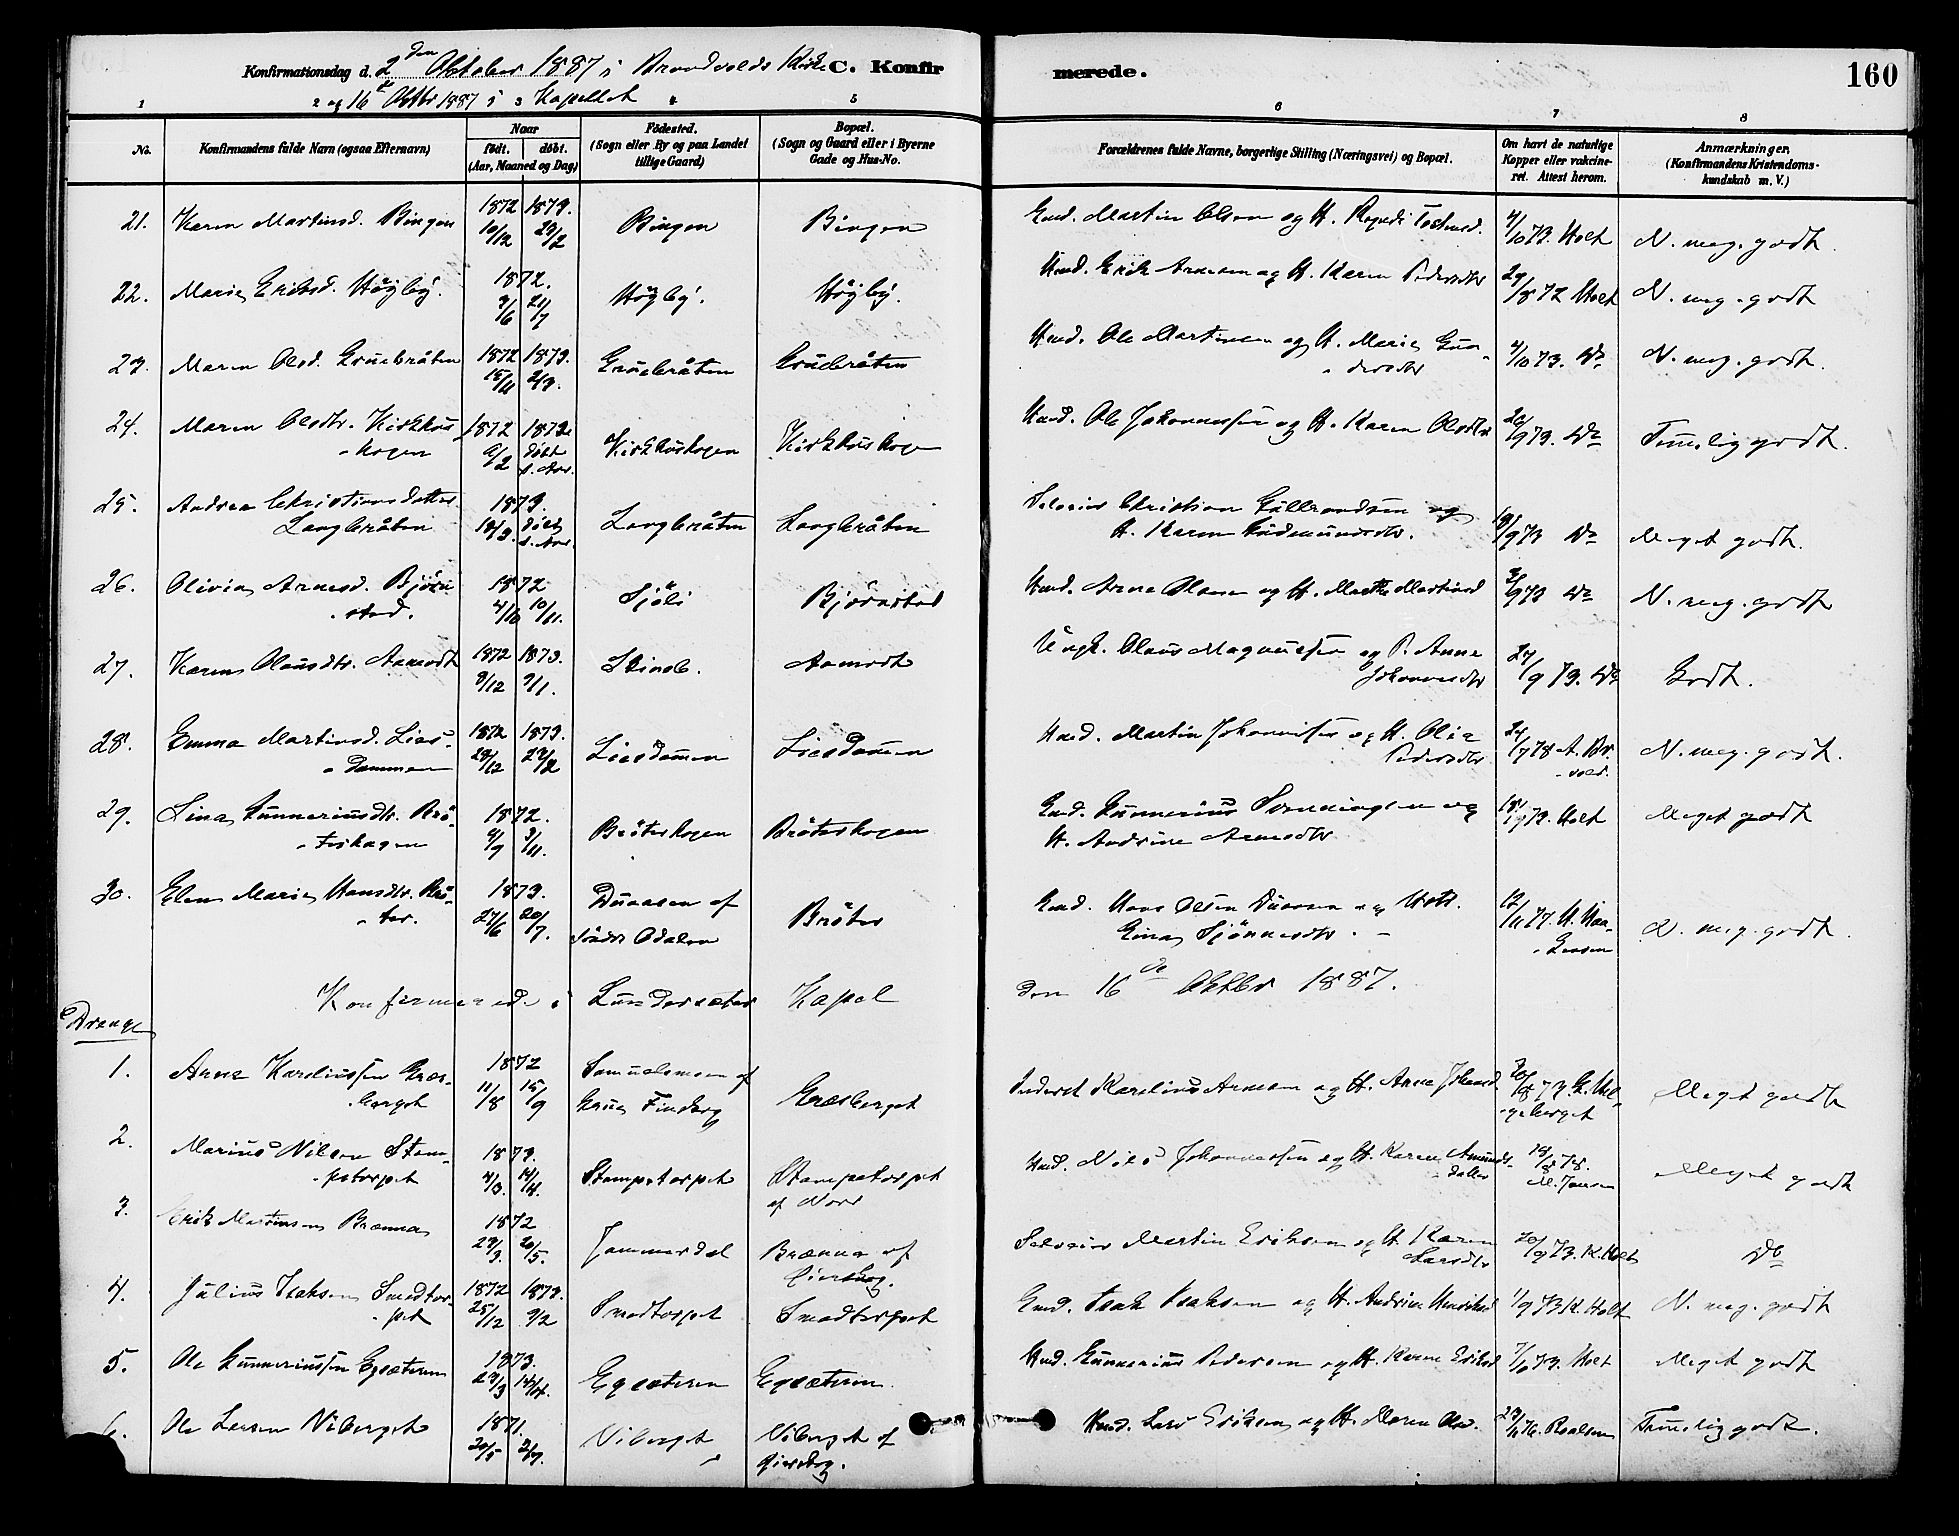 Konfirmationsdag d. 2den Oktober 1887 i Brandvolds Kirke C. Konfirmerede. 160
og 16de Oktbr 1887 i Kapellet
1 2 3 4 5 6 7 8
No.
Konfirmandens fulde Navn (ogsaa Efternavn)
Naar
født. døbt.
(Aar, Maaned og Dag)
Fødested.
(Sogn eller By og paa Landet tillige Gaard)
Bopæl.
(Sogn og Gaard eller i Byerne Gade og Hus-No.
Forældrenes fulde Navne, borgerlige Stilling (Næringsvei) og Bopæl.
Om havt de naturlige Kopper eller vakcineret. Attest herom.
Anmærkninger.
(Konfirmandens Kristendomskundskab m. V.)
21. Karen Martinsd. Bingen 1872 10/12 1873. 23/2 Bingen Bingen Gmd. Martin Olsen og H. 4/10 73. Holt N. meg. godt.
22. Marie Eriksd. Høgby. 1872. 9/6 21/7 Høgby. Høgby. Hmd. Erik Arnesen og H. Karen Pedersdtr 29/8 72 Holt N. meg. godt
23. Maren Olsd. Gruebråten 1872 15/11 1873. 2/3. Gruebråten Gruebråten Hmd. Ole Martinsen og H. Marie Gundersdtr 4/10 73. Do N. meg. godt.
24. Maren Olsdtr. Kirkhuskogen 1872 2/2 døbt s. Aar. Kirkhuskogen Kirkhuskogen Hmd. Ole Johannessen og H. Karen Olsdtr 20/9 73. Do Temmelig godt.
25. Andrea Christiansdatter Langbråten 1873. 18/3. døbt s. Aar. Langbråten Langbråten Selveier Christian Gulbrandsen og H. Karen Gudmundsdtr. 19/9 73 Do Meget godt.
26. Olivia Arnesd. Bjørnstad. 1872 4/10 10/11. Sjöli Bjørnstad Hmd. Arne Olsen og H. Marthe Martinsd 3/9 73 Do N. meg. godt
27. Karen Olausdtr. Aamodt 1872 9/12 1873. 9/1. Aamodt Ungk. Olaus Magnussen og P. Anne Johannesdtr 27/9 73. Do Godt.
28. Emma Martinsd. Liesdammen 1872 29/12 1873. 23/2 Liesdammen Liesdammen Hmd. Martin Johannessen og H. Olia Pedersdtr 24/9 78 A. Brvold. N. meg. godt.
29. Lina Gunneriusdtr. Bröterskogen 1872. 9/9 3/11. Bröterskogen Bröterskogen Gmd. Gunnerius og H. Andrine Arnesdtr 18/9 73. Holt Meget godt
30. Elen Marie Hansdtr. Bröter. 1873. 27/6 20/7. af Søndre Odalen Bröter Gmd. Hans Olsen og Hstr. Lina 12/11 77. H. N. meg. godt.
Konfirmered. i Lundersæter Kapel den 16de Oktbr 1887.
Drenge
1. Arne Karelius͏sen Græsberget 1872 11/8 15/9 Samuelsmoen af Grue Finskog Græsberget Inderst Karelius Arnesen og H. Anne Johansd. 20/8 73. Meget godt
2. Marius Nilsen Stampetorpet 1873. 4/3. 14/4. Stampetorpet Stampetorpet af Nord Hmd. Nils Johannessen og H. Karen Amundsdatter 19/8 78. M. Jansen Meget godt
3. Erik Martinsen Brænna 1872 29/3. 20/5. Jammerdal Brænna af Eierskog. Selveier Martin Eriksen og H. Karen Larsdtr 20/9 73. K. Holt Do
4. Julius Isaksen Smedtorpet 1872 25/12 1873. 9/2 Smedtorpet Smedtorpet Gmd. Isak Isaksen og H. Andrine 1/9 73 K. Holt N. meg. godt
5. Ole Gunneriussen Egsæteren 1873. 23/3 14/4. Egsæteren Egsæteren Hmd. Gunnerius Pedersen og H. Karen Eriksd 7/9 73. Holt Meget godt
6. Ole Larsen Viberget 1871. 20/5 2/7. Viberget Viberget af Eierskog. Hmd. Lars Eriksen og H. Maren Olsd. 23/11 76. Roalsen Temmelig godt.